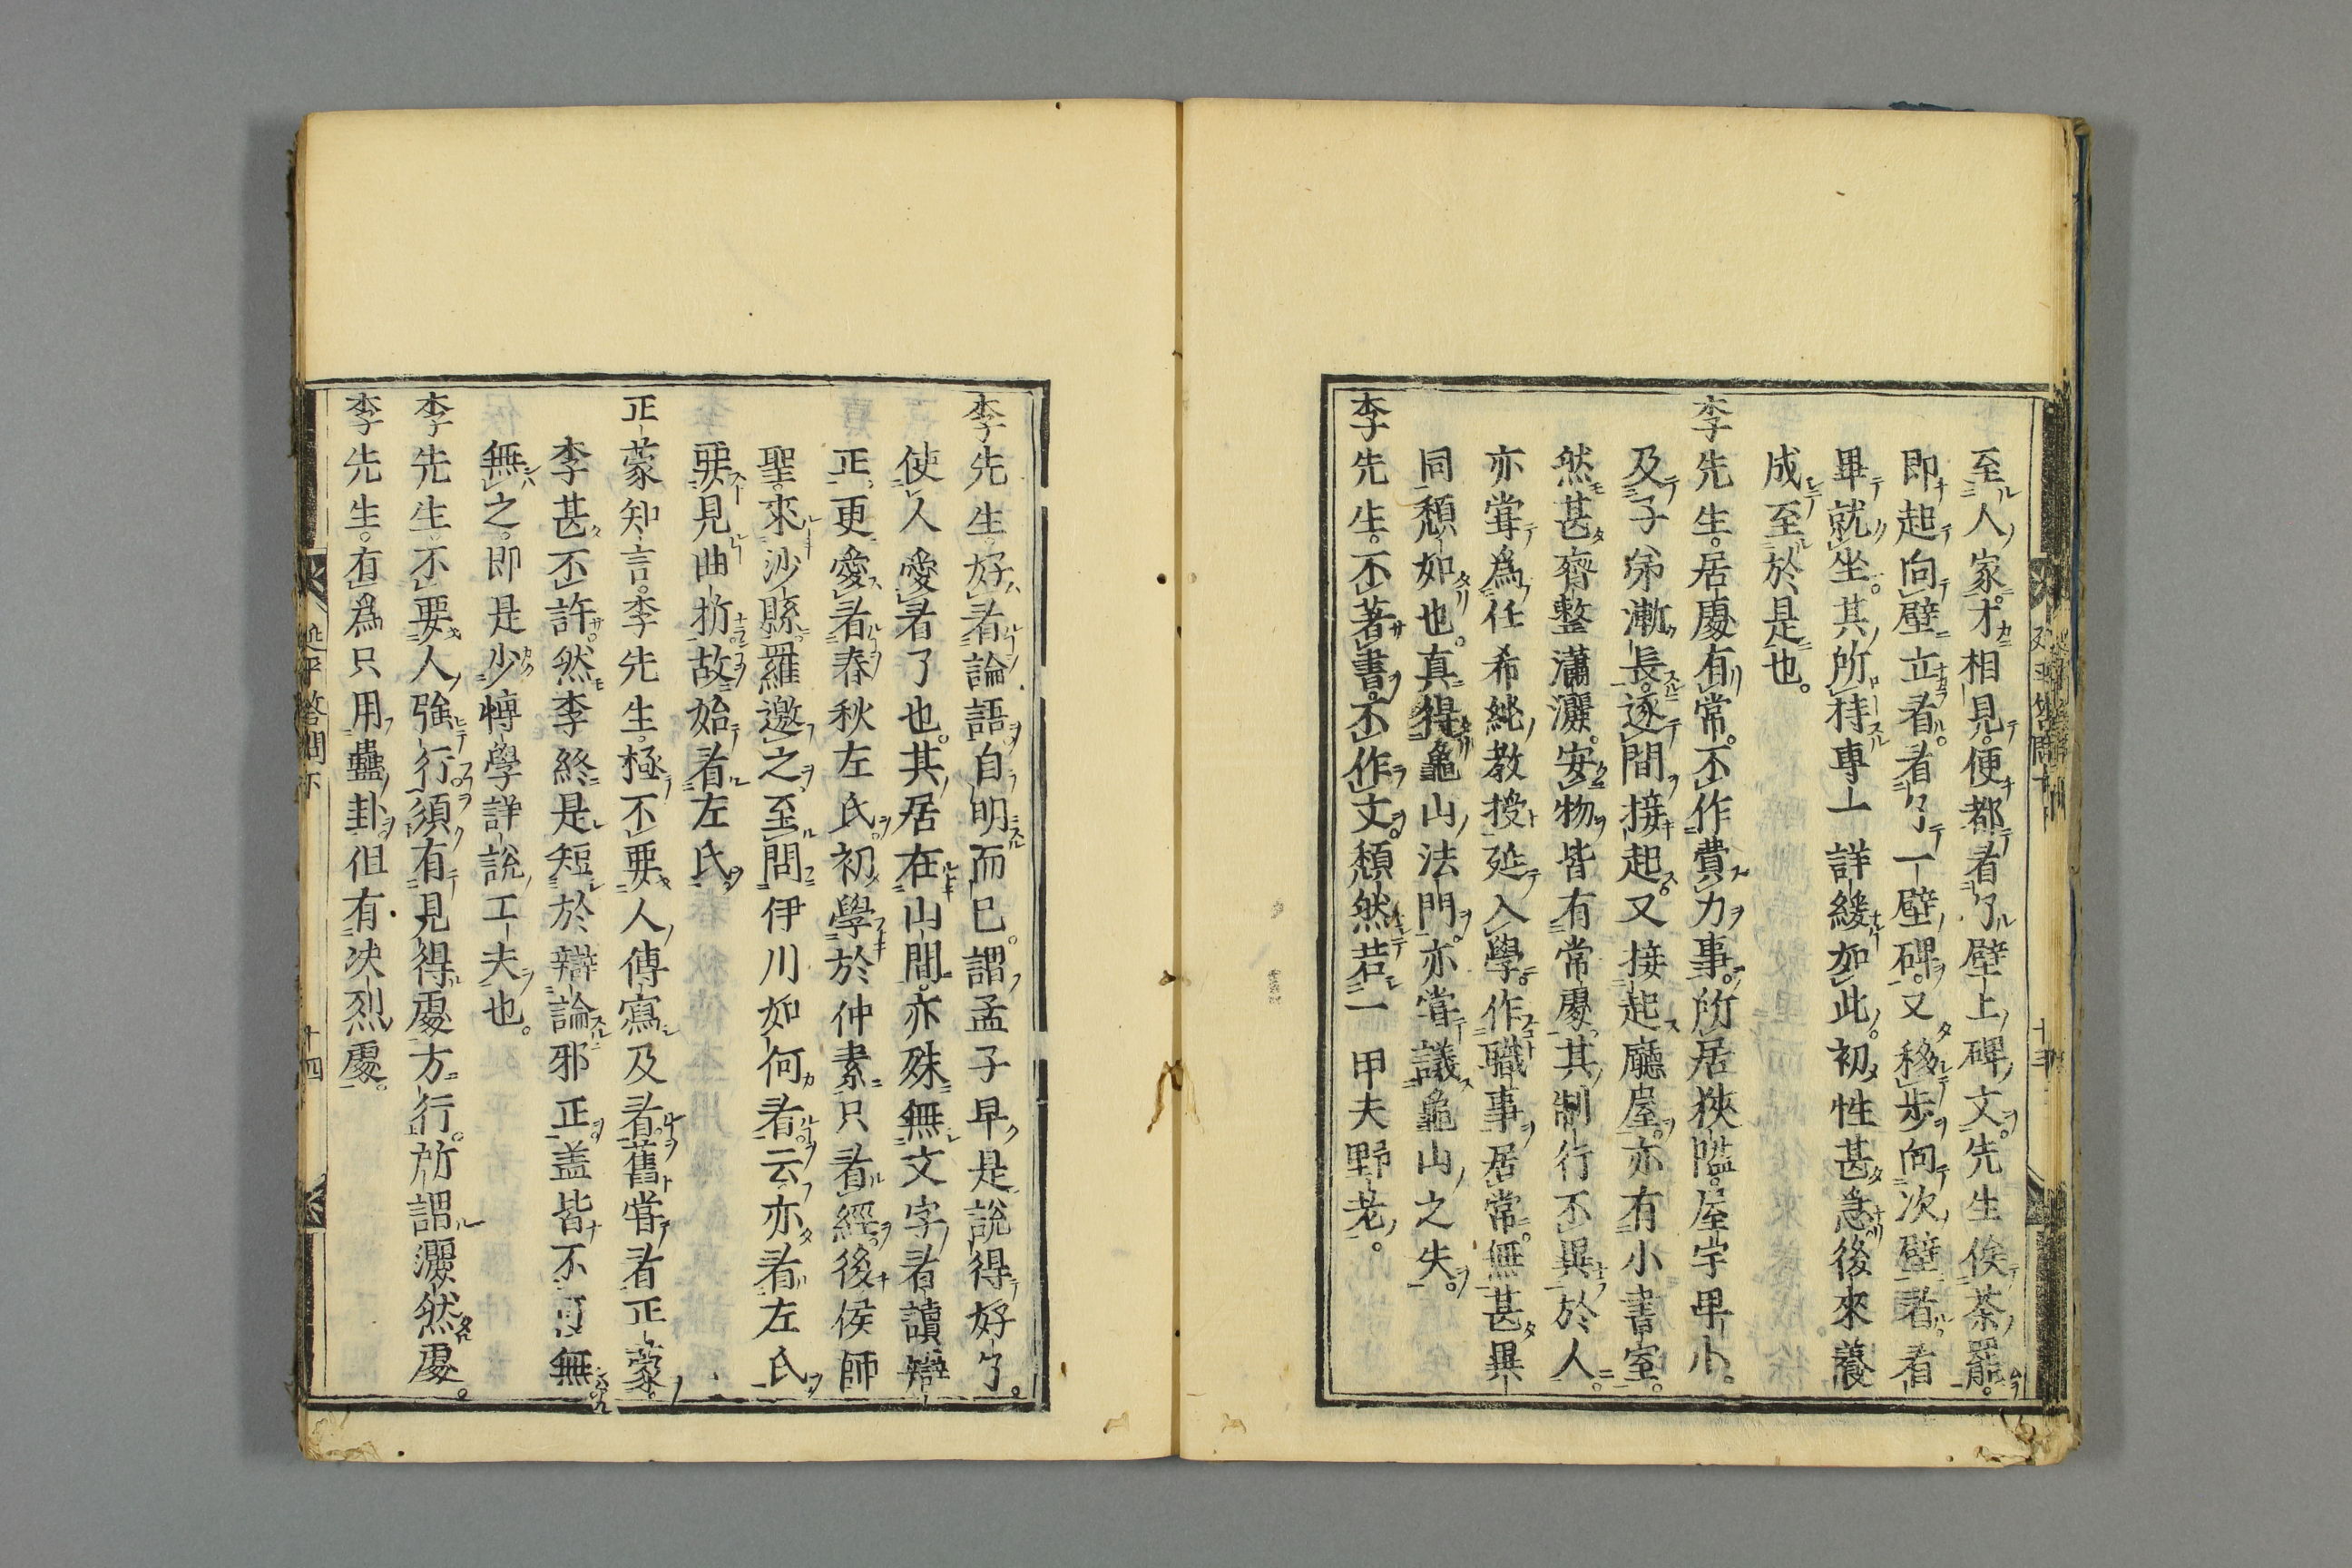 至人家才相見便都看了壁上碑文先生俟茶罷
即起向壁立看看了一壁碑又移步向次壁看看
畢就坐其所持專一詳緩如此初性甚急後來養
成至於是也
李先生居處有常不作費力事所居狹隘屋宇卑小
及子弟漸長逐間接起又接起廳屋亦有小書室
然甚齊整瀟灑安物皆有常處其制行不異於人
亦甞爲任希純教授延入學作職事居常無甚異
同頹如也真得龜山法門亦嘗議龜山之失
李先生不著書不作文頹然若一田夫野老
李先生好看論語自明而已謂孟子早是說得好了
使人愛看了也其居在山間亦殊無文字看讀辯
正更愛看春秋左氏初學於仲素只看經後侯師
聖來沙縣羅邀之至問伊川如何看云亦看左氏
要見曲折故始看左氏
正蒙知言李先生極不要人傳寫及看舊嘗看正蒙
李甚不許然李終是短於辯論邪正盖皆不可無
無之即是少博學詳說工夫也
李先生不要人強行須有見得處方行所謂灑然處
李先生有爲只用蠱卦但有决烈處
延平答問下
十四